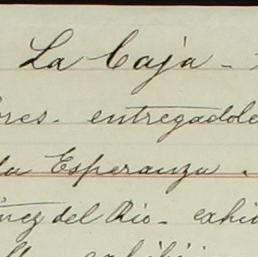 La Caja -
ores - entregadole
la Esperanza.
ñez del Rio - exhi